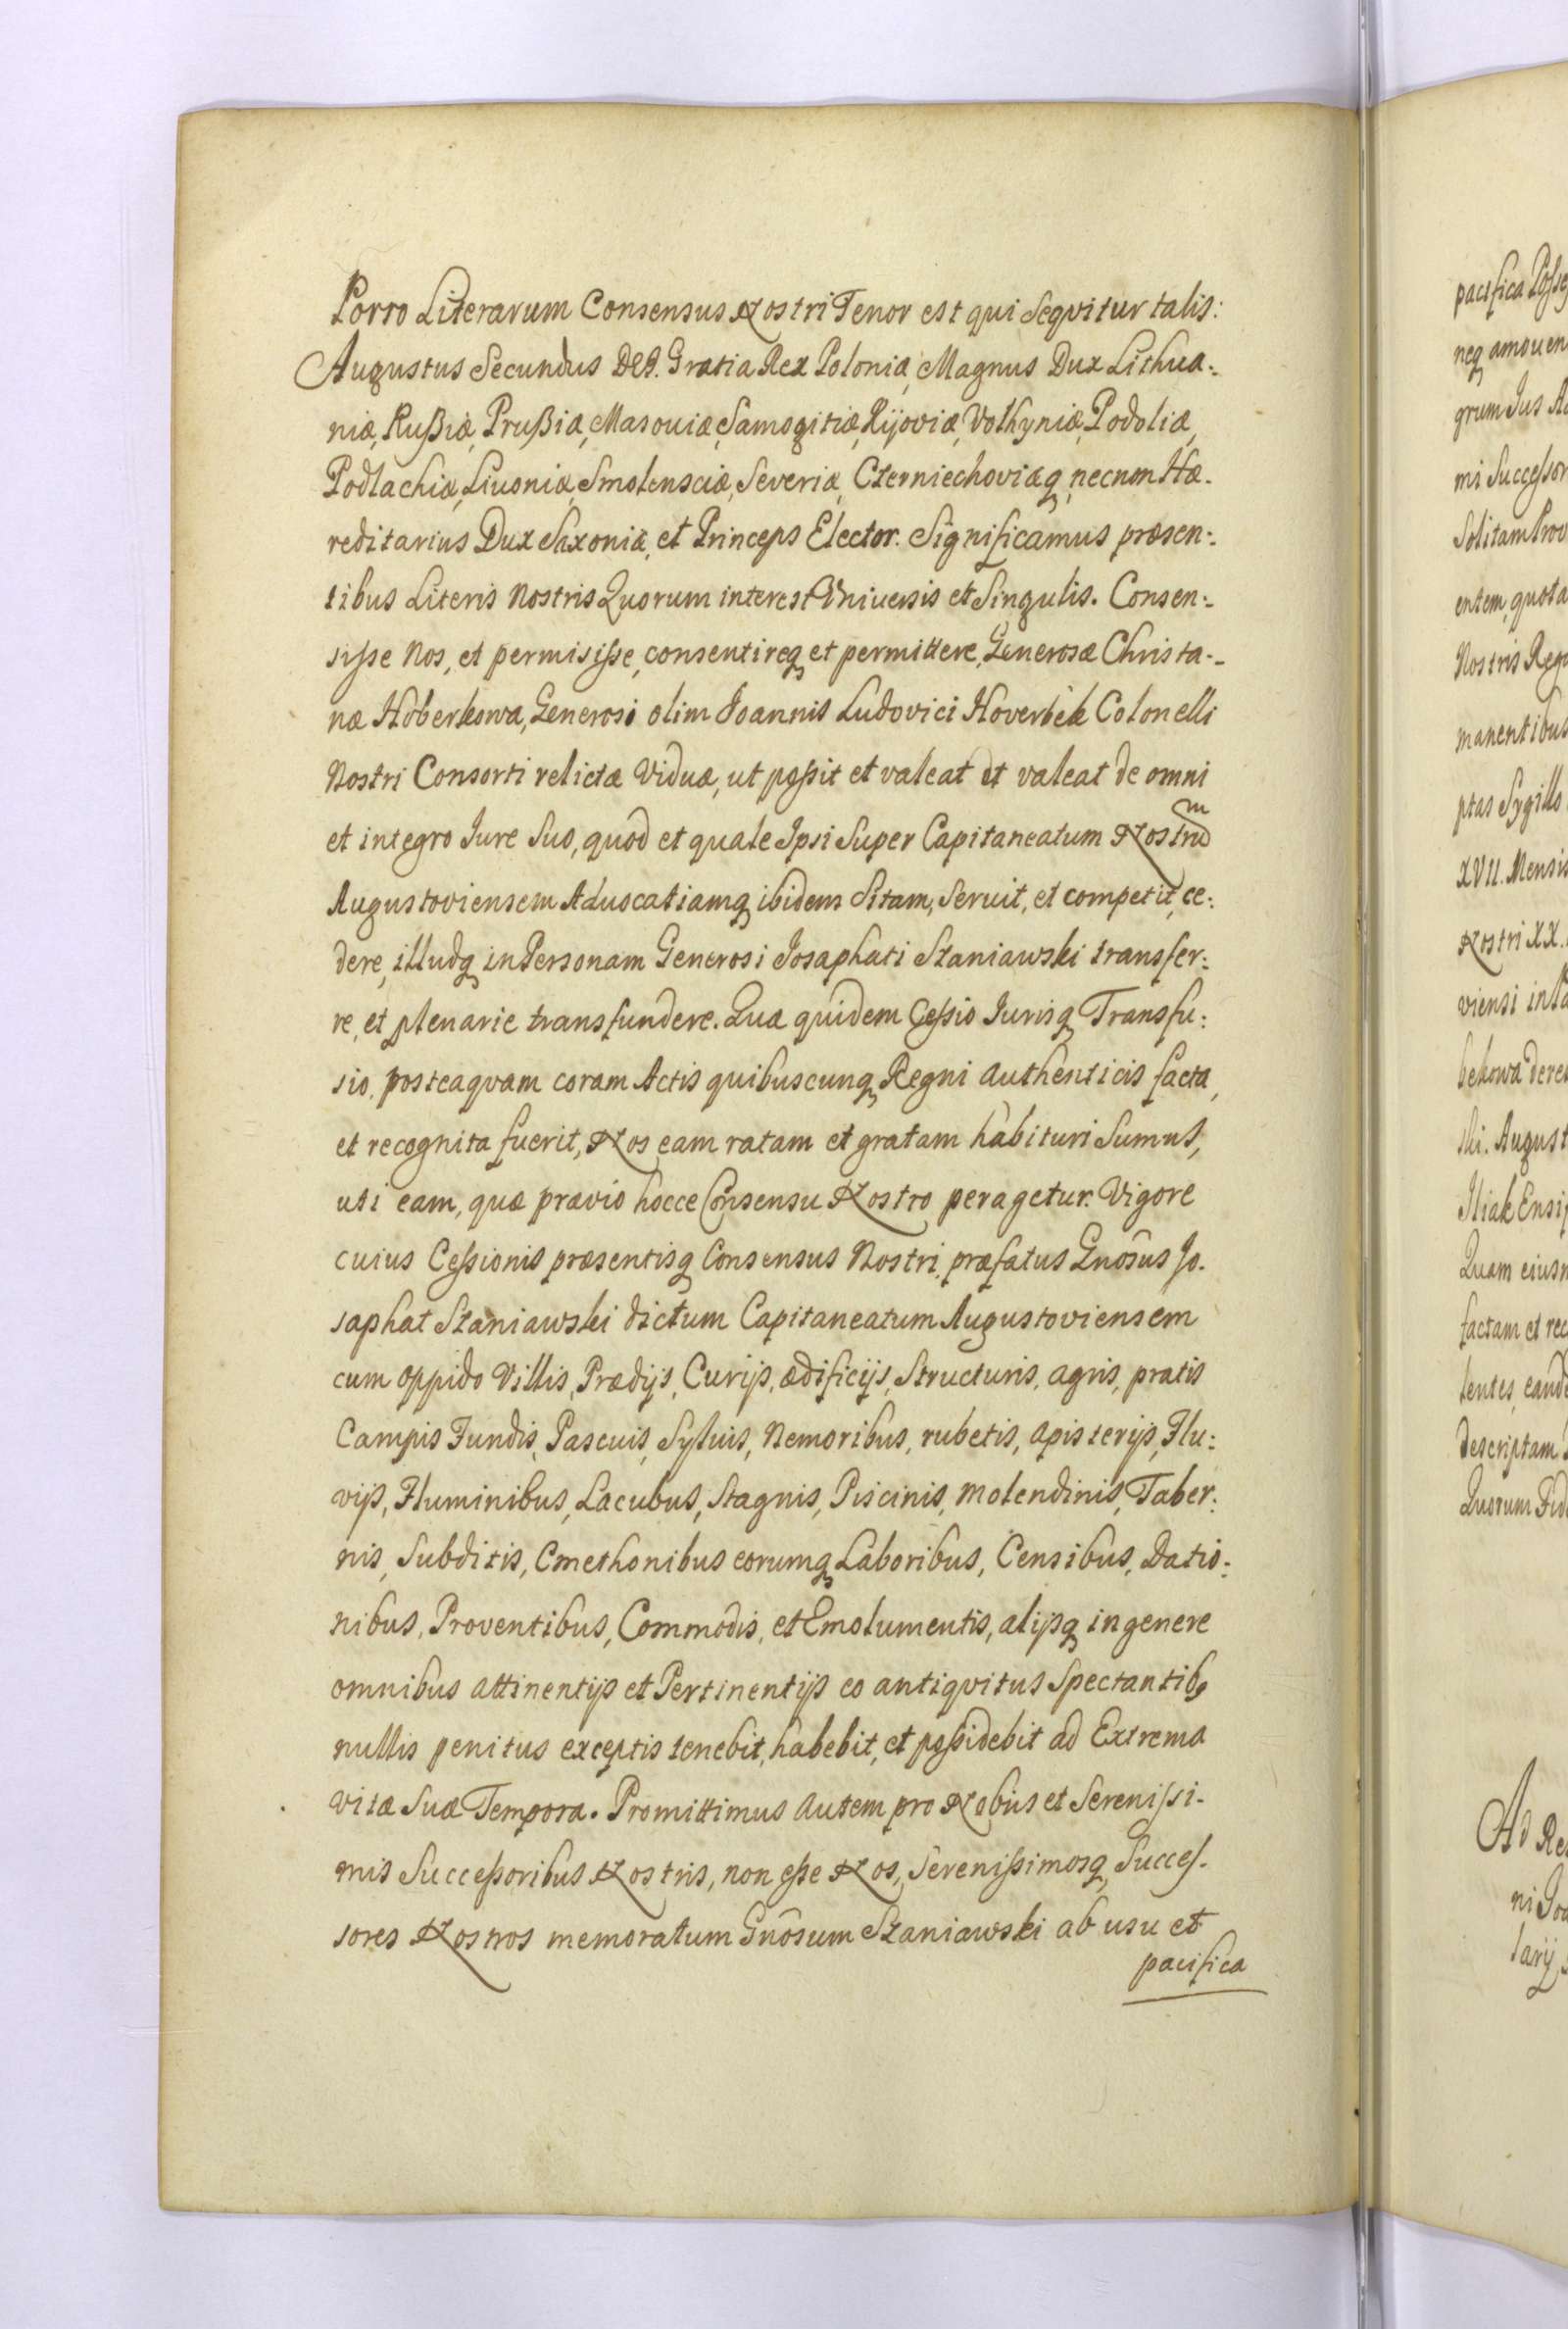 Porro Literarum Consensus Nostri Tenor est qui Seqvitur talis:
Augustus Secundus DEI. Gratia Rex Poloniæ, Magnus Dux Lithua:
niæ, Rußiæ, Prußiæ, Masouiæ, Samogitiæ, Kijoviæ, Volhyniæ, Podoliæ,
Podlachiæ, Liuoniæ, Smolensciæ, Severiæ, Czerniechoviæq, necnon Hæ-
reditarius Dux Saxoniæ, et Princeps Elector. Significamus præsen:
tibus Literis Nostris Quorum interest Vniuersis et Singulis. Consen:
sisse Nos, et permisisse, consentireq et permittere, Generosæ Christa:
næ Hoberkowa, Generosi olim Joannis Ludovici Hoverbek Colonelli
Nostri Consorti relictæ Viduæ, ut poßit et valeat et valeat de omni
et integro Iure Suo, quod et quale Ipsi Super Capitaneatum Nostrum
Augustoviensem Aduocatiamq ibidem Sitam, Seruit, et competit, ce:
dere, illudq in Personam Generosi Josaphati Szaniawski transfer:
re, et plenarie transfundere. Quæ quidem Ceßio Iurisq Transfu:
sio, posteaqvam coram Actis quibuscunq Regni Authenticis facta,
et recognita fuerit, Nos eam ratam et gratam habituri Sumus,
uti eam, quæ prævio hocce Consensu Nostro peragetur. Vigore
cuius Ceßionis præsentisq Consensus Nostri, præfatus Gnosus Jo-
saphat Szaniawski dictum Capitaneatum Augustoviensem
cum Oppido Villis, Prædijs, Curijs, ædificijs, Structuris, agris, pratis
Campis Fundis, Pascuis, Syluis, Nemoribus, rubetis, apisterijs, Flu:
vijs, Fluminibus, Lacubus, Stagnis, Piscinis, molendinis, Taber:
nis, Subditis, Cmethonibus eorumq Laboribus, Censibus, Datio:
nibus, Proventibus, Commodis, et Emolumentis, alijsq in genere
omnibus attinentijs et Pertinentijs eo antiqvitus Spectantib9
nullis penitus exceptis tenebit, habebit, et poßidebit ad Extrema
vitæ Suæ Tempora. Promittimus Autem pro Nobis et Serenissi-
mis Succeßoribus Nostris, non esse Nos, Sereniſsimosq, Succeſ-
sores Nostros memoratum Gnosum Szaniawski ab usu et
pacifica
pacifica
neq amouen
grum Ius
mi Succeßor
Solitam Prov
entem, quota
Nostris Reg
manentibus
ptas Sygillo
XVII. Mensis
Nostri XX.
viensi in
bekowa de
ski. August
Iliak Ensi
Quam eius
factam et rec
lentes, eand
descriptam
Quorum Fid
Ad Re
ni Jo
larij